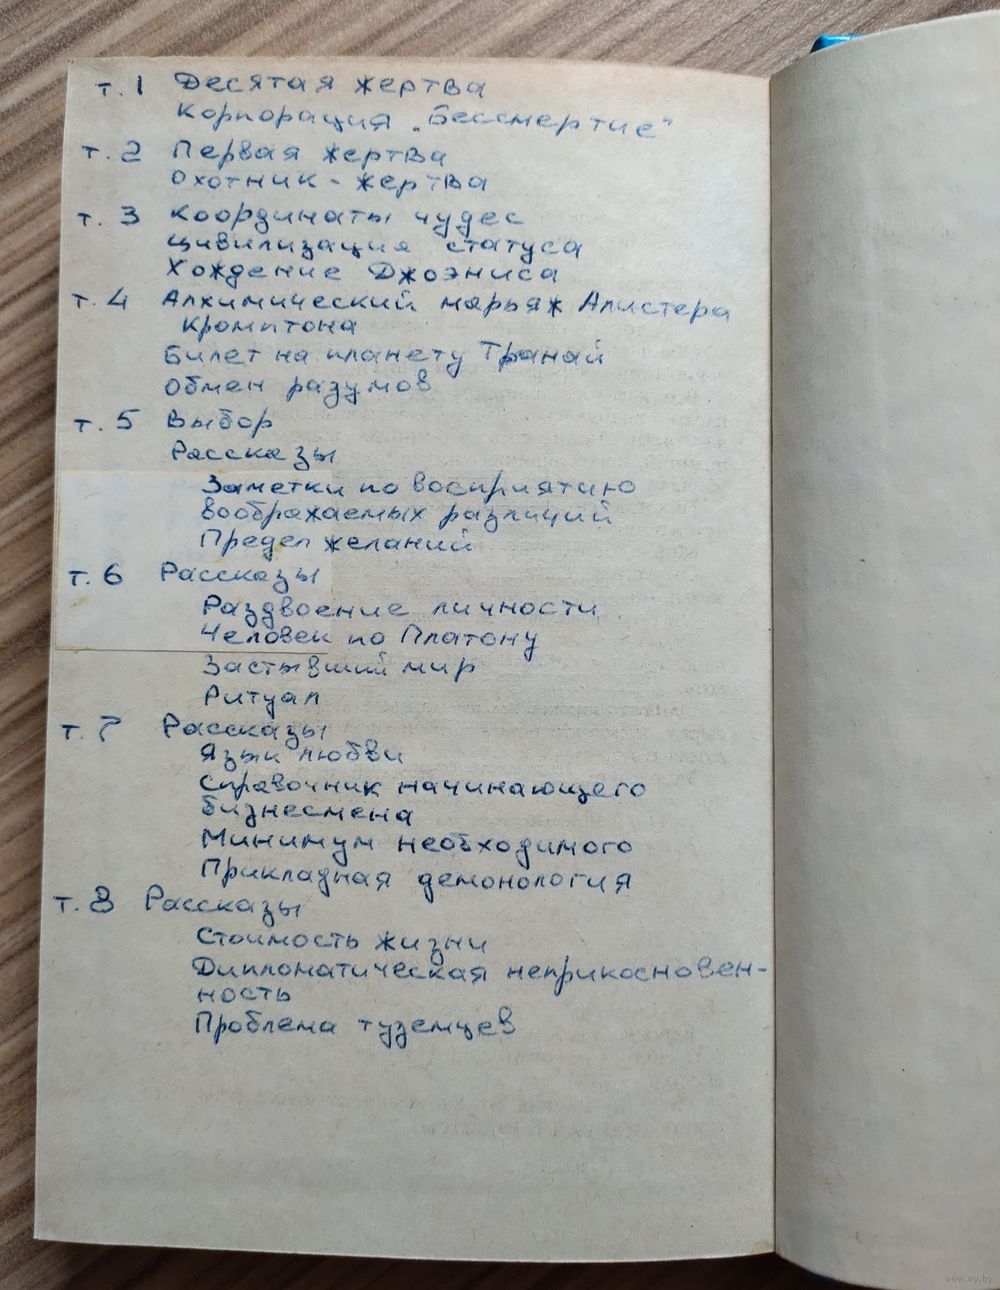 т. 1 Десятая жертва
Корпорация „Бессмертие"
т. 2 Первая жертва
Охотник - жертва
т. 3 Координаты чудес
Цивилизация статуса
Хождение Джоэниса
т. 4 Алхимический марьяж Алистера
Кромптона
Билет на планету Транай
Обмен разумов
т. 5 Выбор
Рассказы
Заметки по восприятию
воображаемых различий
Предел желаний
т. 6 Рассказы
Раздвоение личности
Человек по Платону
Застывший мир
Ритуал
т. 7 Рассказы
Язык любви
Справочник начинающего
бизнесмена
Минимум необходимого
Прикладная демонология
т. 8 Рассказы
Стоимость жизни
Дипломатическая неприкосновен-
ность
Проблема туземцев
www.ay.by